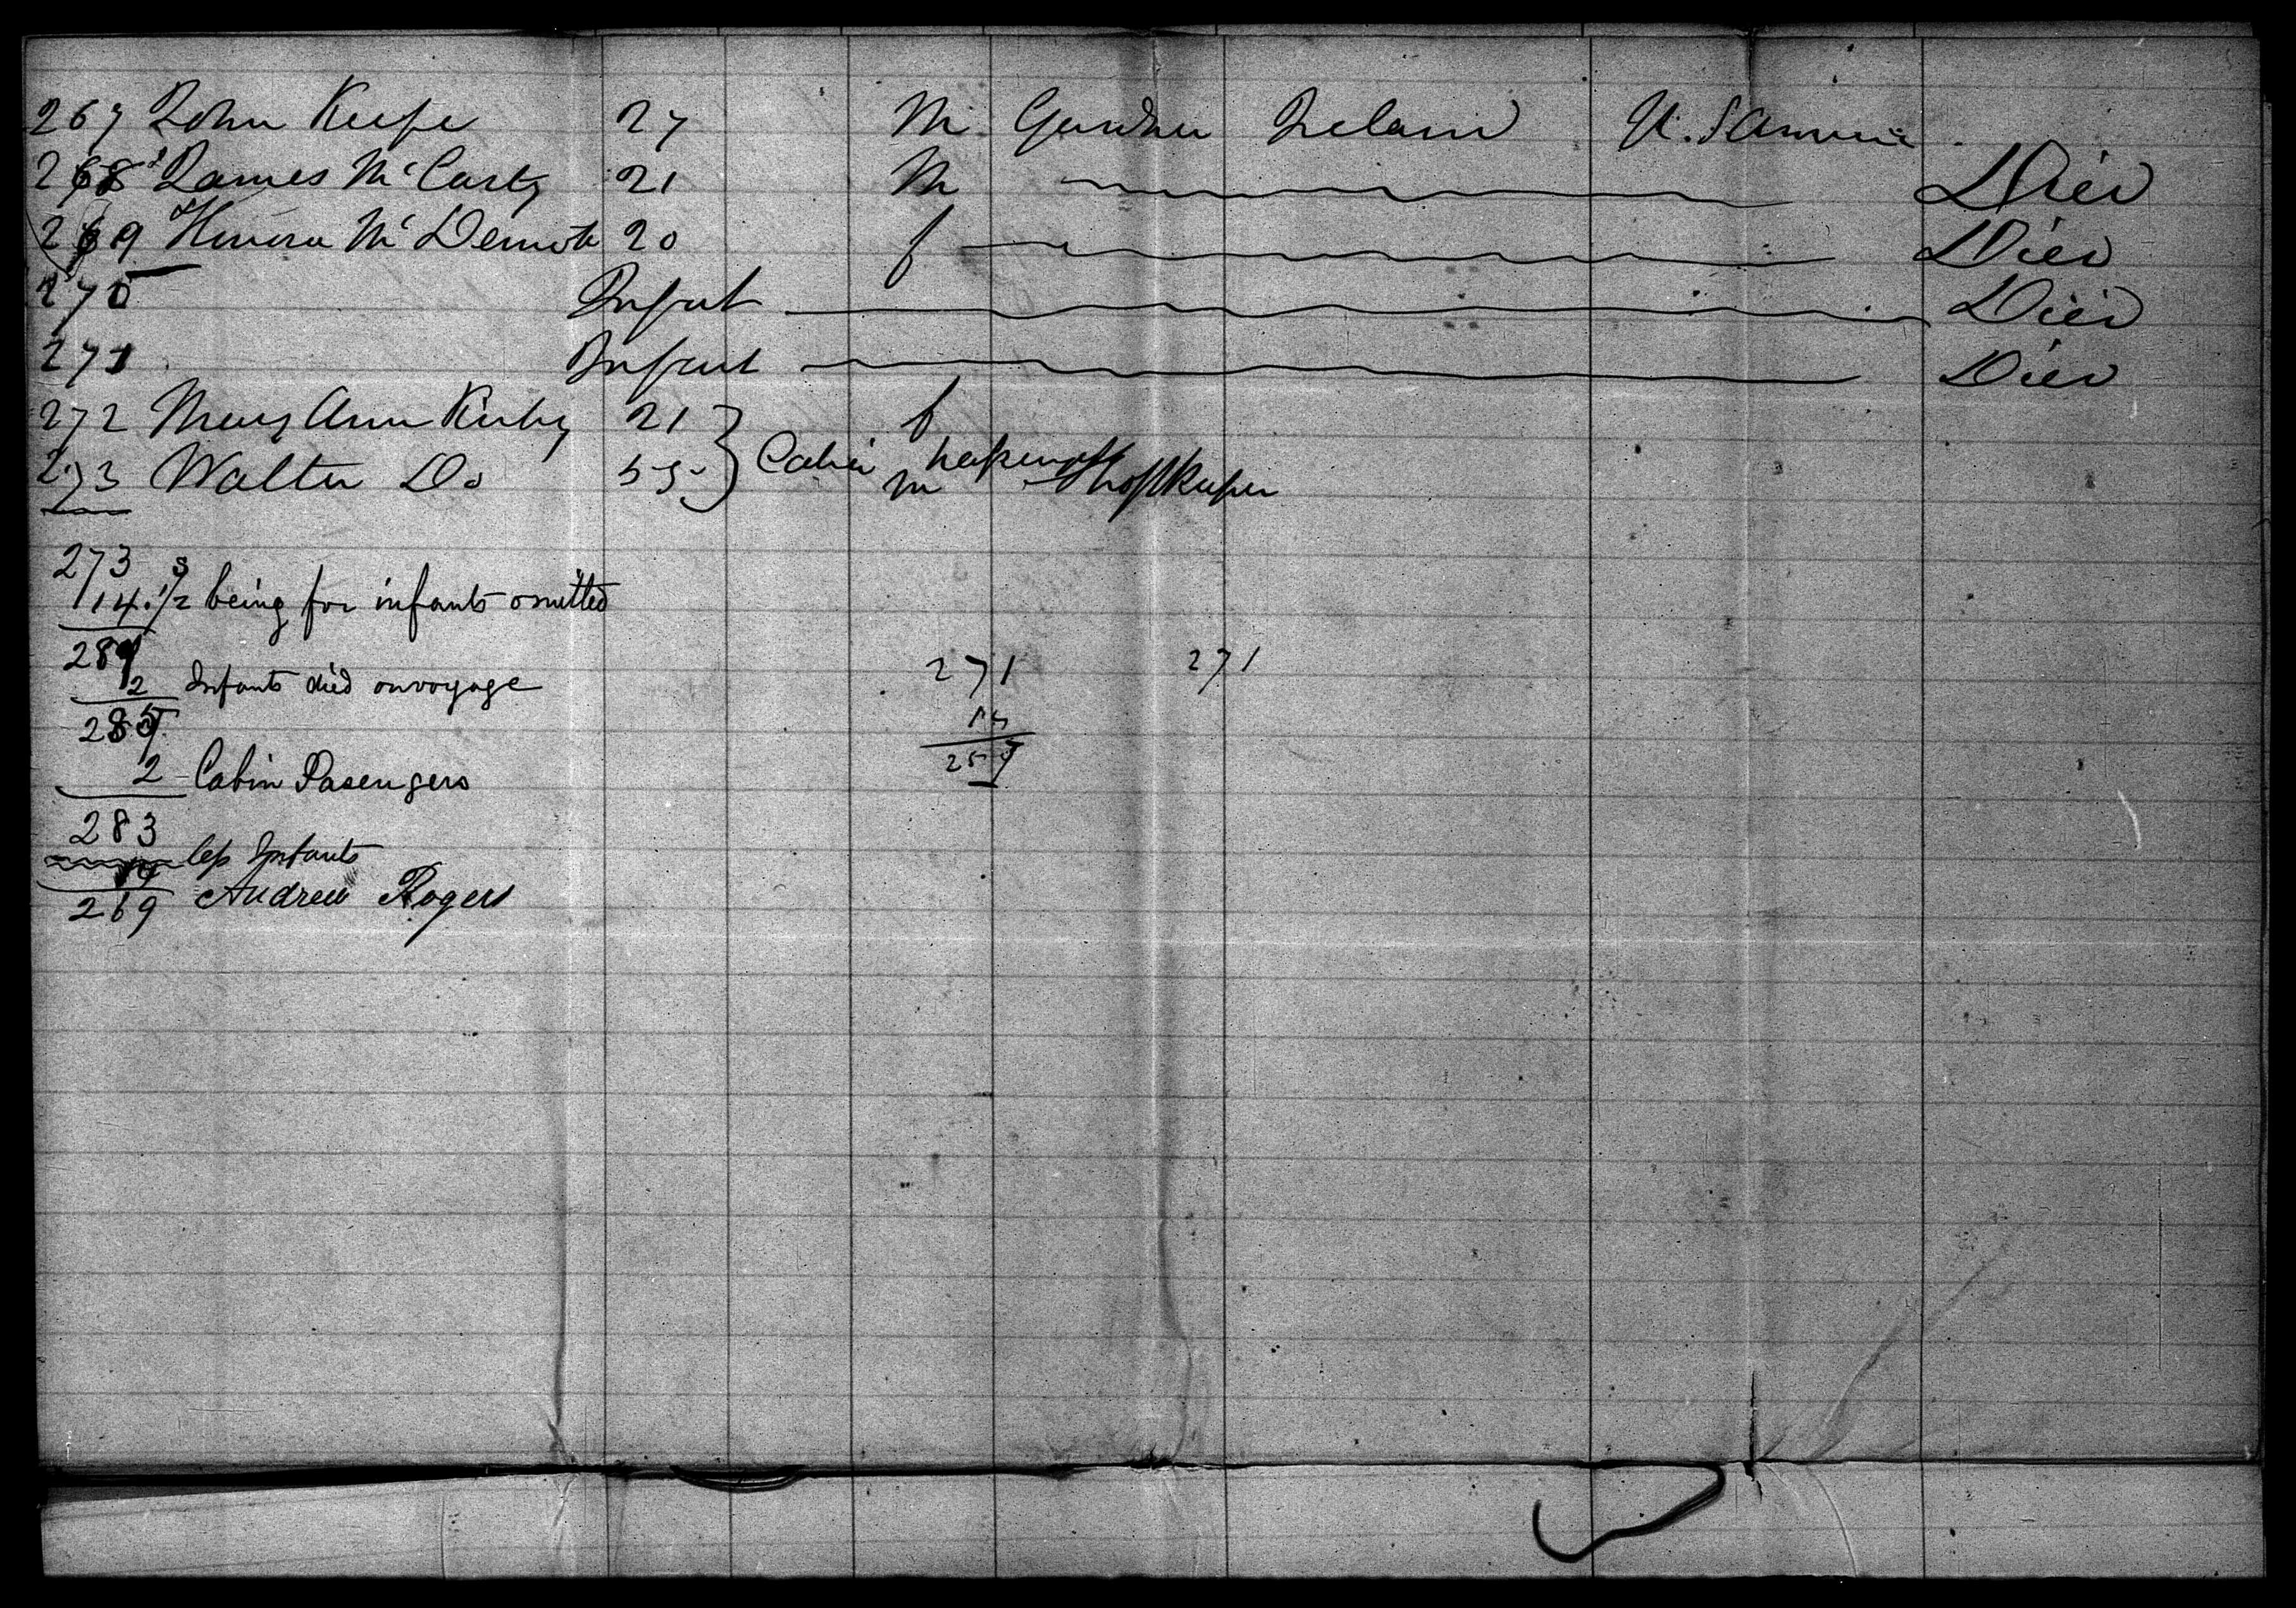 267 John Keefe 27 M Gardner Ireland U. S America
268 James McCarty 21 M Died
269 Honora McDermott 20 f Died
270 Infant Died
271 Infant Died
272 Mary Ann Kirby 21 f
273 Walter Do 55 Cabin M Shopkeeper
273
14 being for infants omitted
287
2 Infants died on voyage 271 271
285 14
2 Cabin Pasengers 257
283
14 less Infants
269 Andrew Rogers